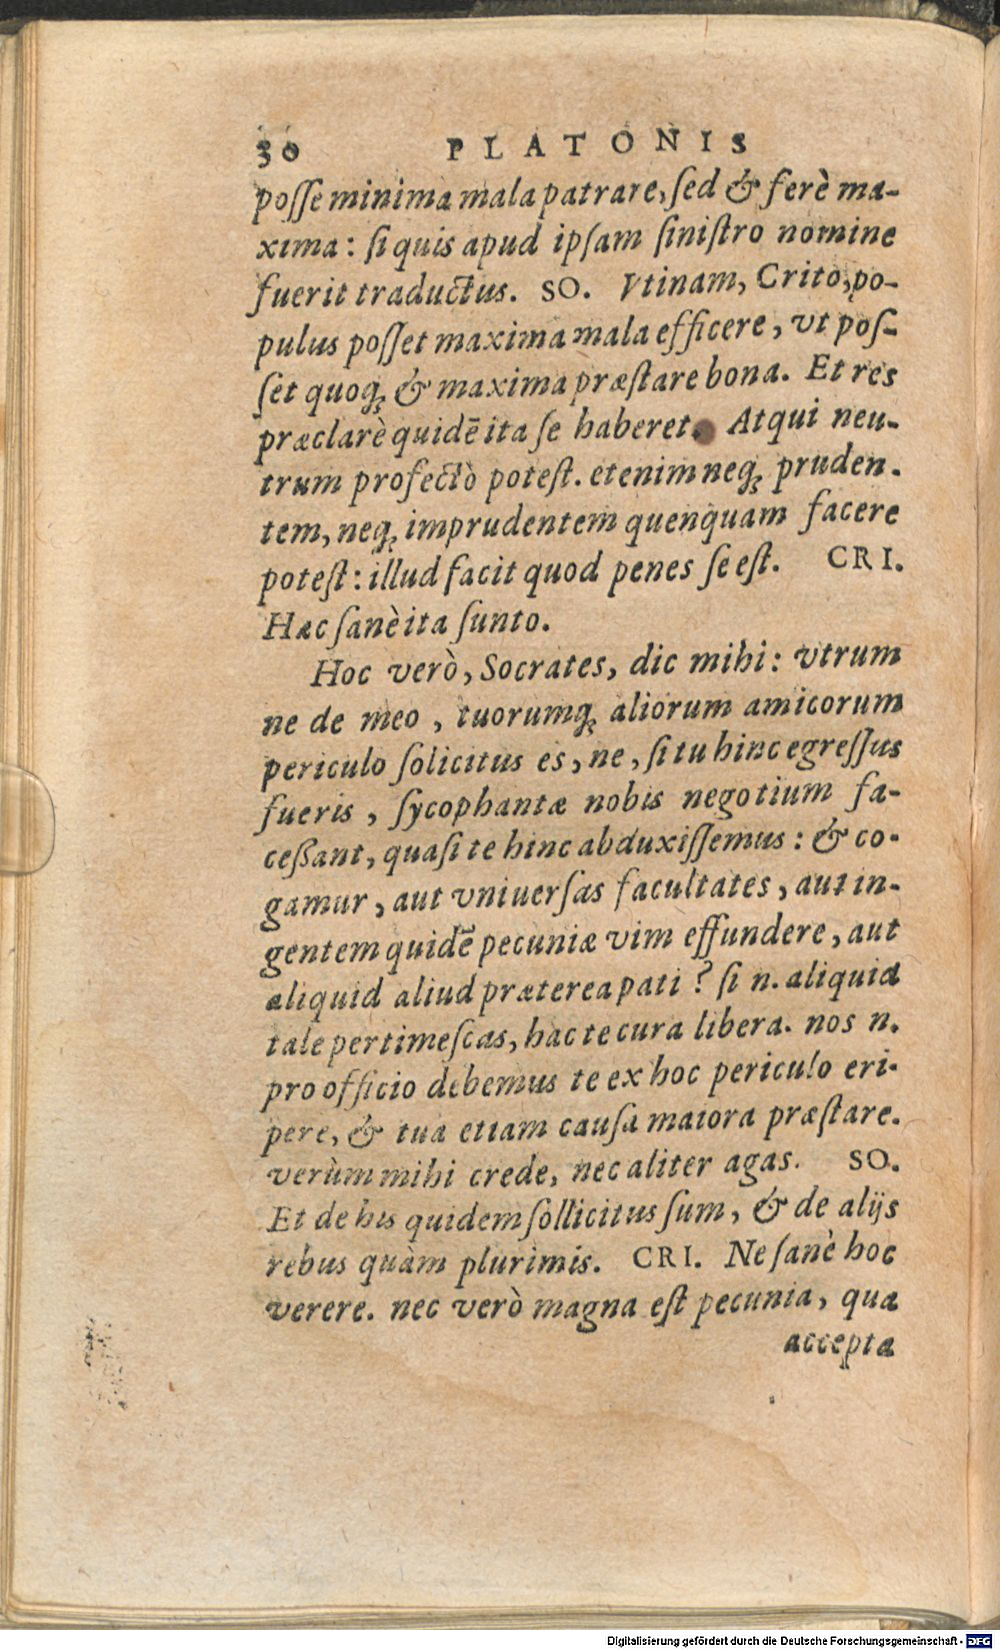 30 PLATONIS
posse minima mala patrare, sed & ferè ma-
xima: si quis apud ipsam sinistro nomine
fuerit traductus. SO. Vtinam, Crito, po-
pulus posset maxima mala efficere, vt pos-
set quoq; & maxima præstare bona. Et res
præclarè quidē ita se haberet. Atqui neu-
trum profectò potest. etenim neq; pruden-
tem, neq; imprudentem quenquam facere
potest: illud facit quod penes se est. CRI.
Hæc sanè ita sunto.
Hoc verò, Socrates, dic mihi: vtrum
ne de meo, tuorumq; aliorum amicorum
periculo solicitus es, ne, si tu hinc egressus
fueris, sycophantæ nobis negotium fa-
ceßant, quasi te hinc abduxissemus: & co-
gamur, aut vniuersas facultates, aut in-
gentem quidē pecuniæ vim effundere, aut
aliquid aliud præterea pati? si n. aliquid
tale pertimescas, hac te cura libera. nos n.
pro officio debemus te ex hoc periculo eri-
pere, & tua etiam causa maiora præstare.
verùm mihi crede, nec aliter agas. SO.
Et de his quidem sollicitus sum, & de alijs
rebus quàm plurimis. CRI. Ne sanè hoc
verere. nec verò magna est pecunia, qua
accepta
Digitalisierung gefördert durch die Deutsche Forschungsgemeinschaft - DFG